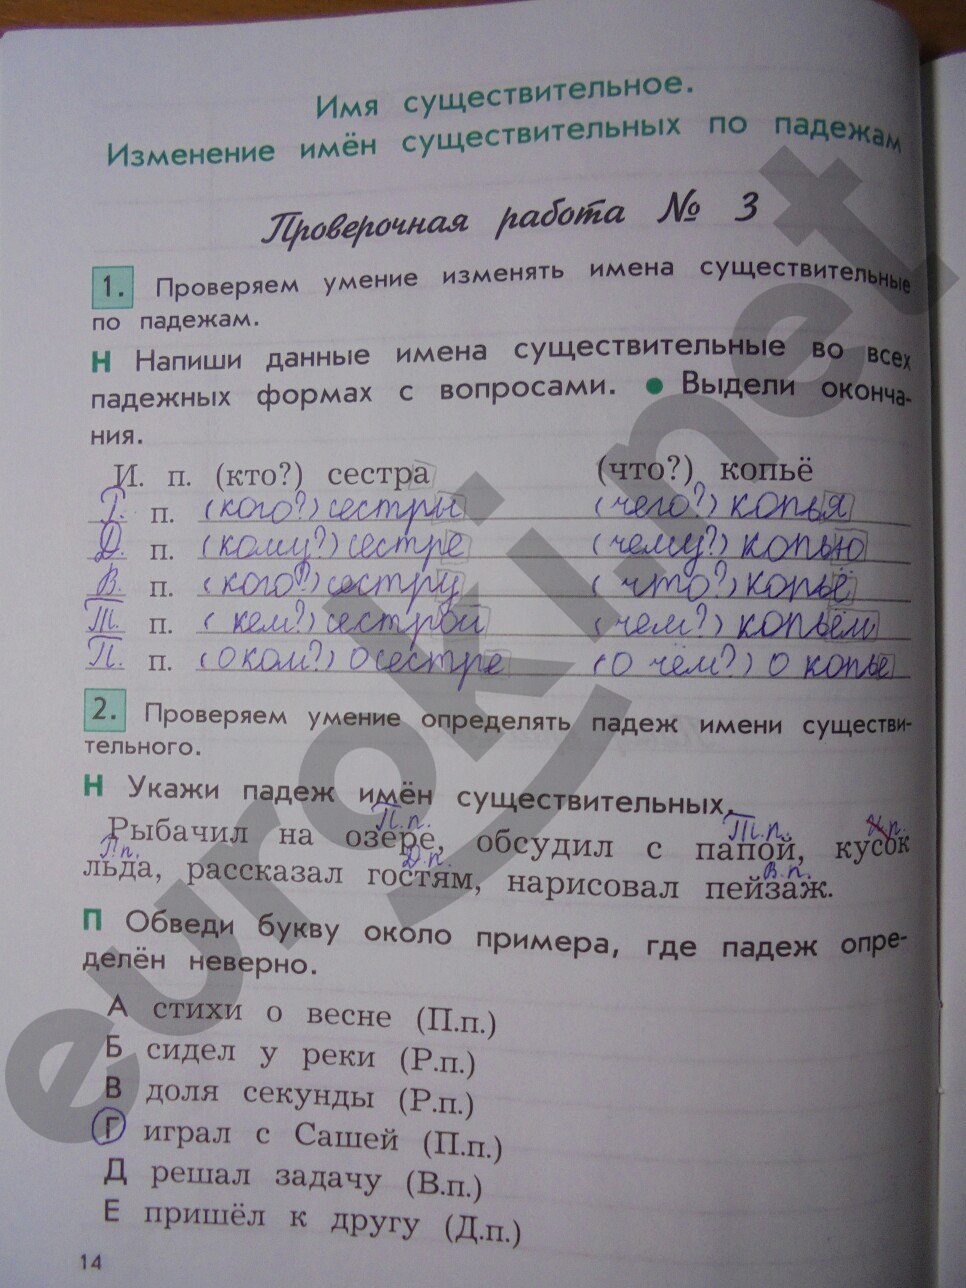 Имя существительное.
Изменение имён существительных по падежам
Проверочная работа № 3
1. Проверяем умение изменять имена существительные
по падежам.
Н Напиши данные имена существительные во всех
падежных формах с вопросами. ● Выдели оконча-
ния.
И. п. (кто?) сестра (что?) копьё
Р. п. (кого?) сестры (чего?) копья
Д. п. (кому?) сестре (чему?) копью
В. п. (кого?) сестру (что?) копьё
Т. п. (кем?) сестрой (чем?) копьём
П. п. (о ком?) о сестре (о чём?) о копье
2. Проверяем умение определять падеж имени существи-
тельного.
Н Укажи падеж имён существительных.
П.п. Т.п. И.п.
Рыбачил на озере, обсудил с папой, кусок
Р.п. Д.п. В.п.
льда, рассказал гостям, нарисовал пейзаж.
П Обведи букву около примера, где падеж опре-
делён неверно.
А стихи о весне (П.п.)
Б сидел у реки (Р.п.)
В доля секунды (Р.п.)
Г играл с Сашей (П.п.)
Д решал задачу (В.п.)
Е пришёл к другу (Д.п.)
14
euroki.net